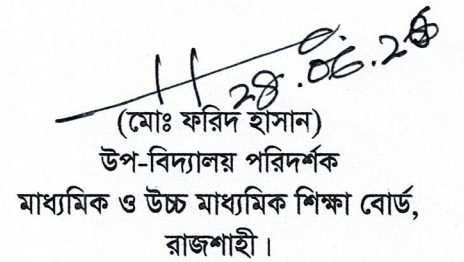 28.06.26
(মোঃ ফরিদ হাসান)
উপ-বিদ্যালয় পরিদর্শক
মাধ্যমিক ও উচ্চ মাধ্যমিক শিক্ষা বোর্ড,
রাজশাহী।